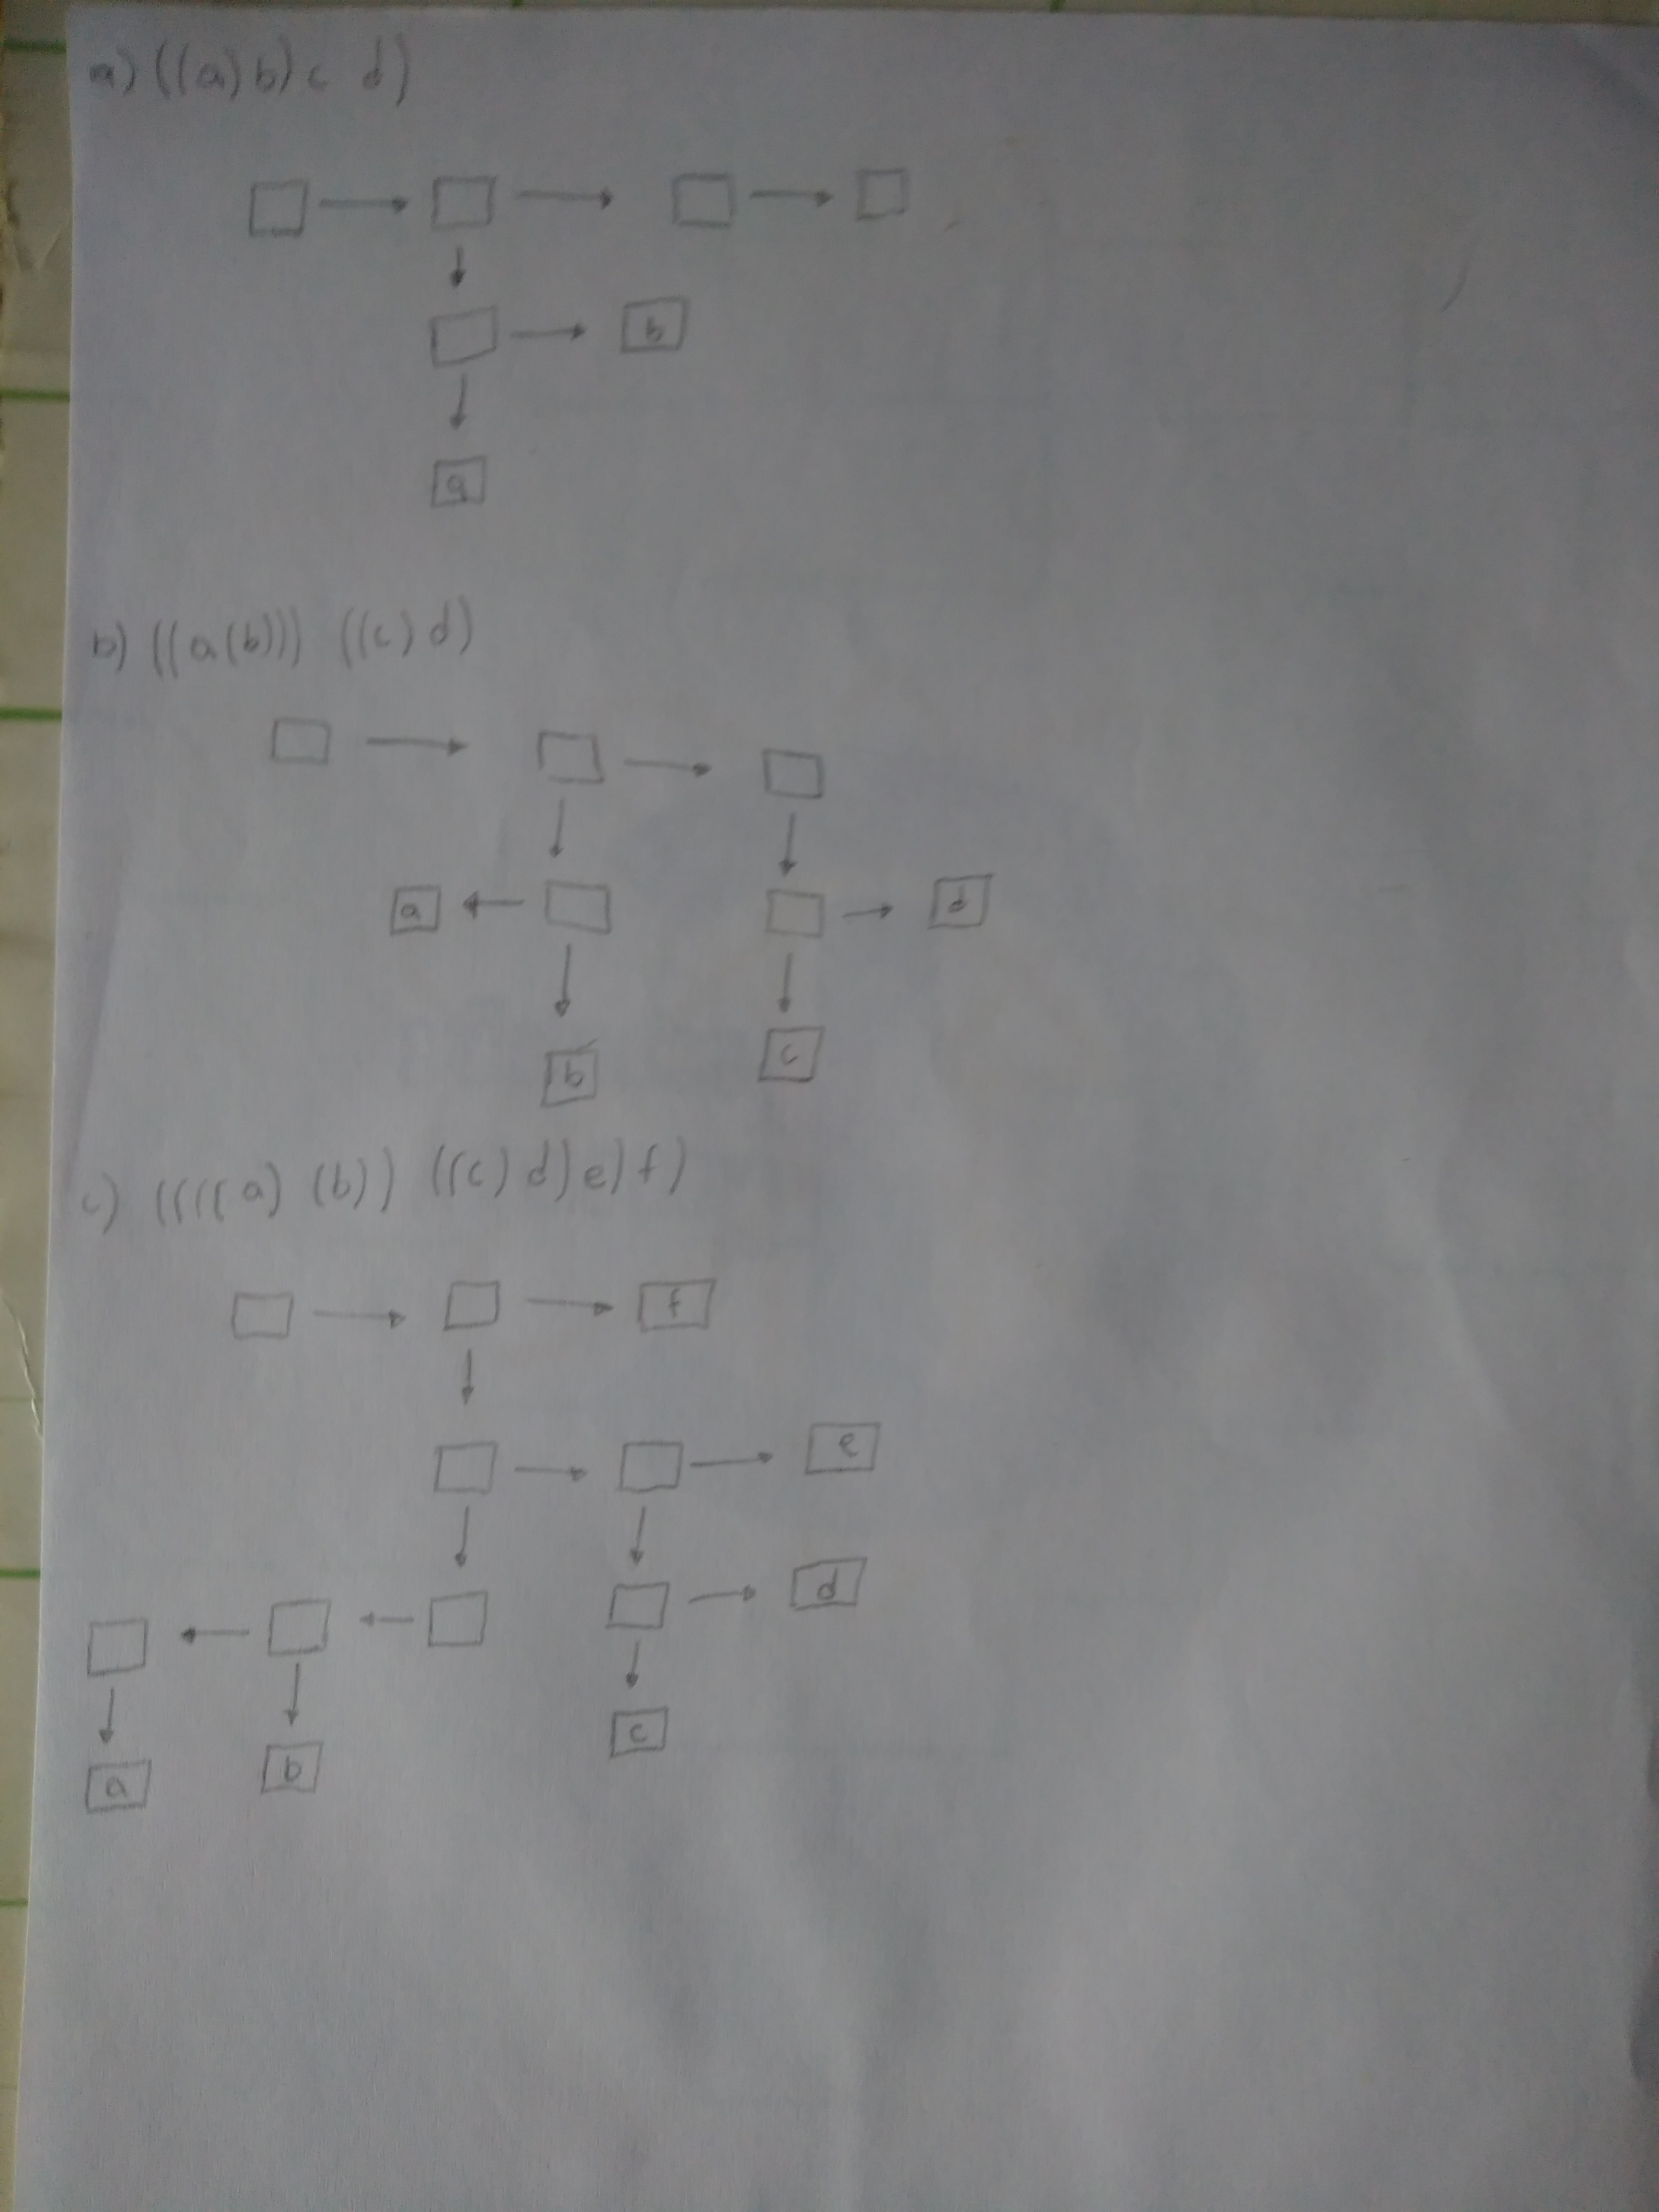 a) ((a) b) c d)
b
a
b) ((a(b))) ((c) d)
a d
b c
c) ((((a) (b)) ((c) d) e) f)
f
e
d
c
a b